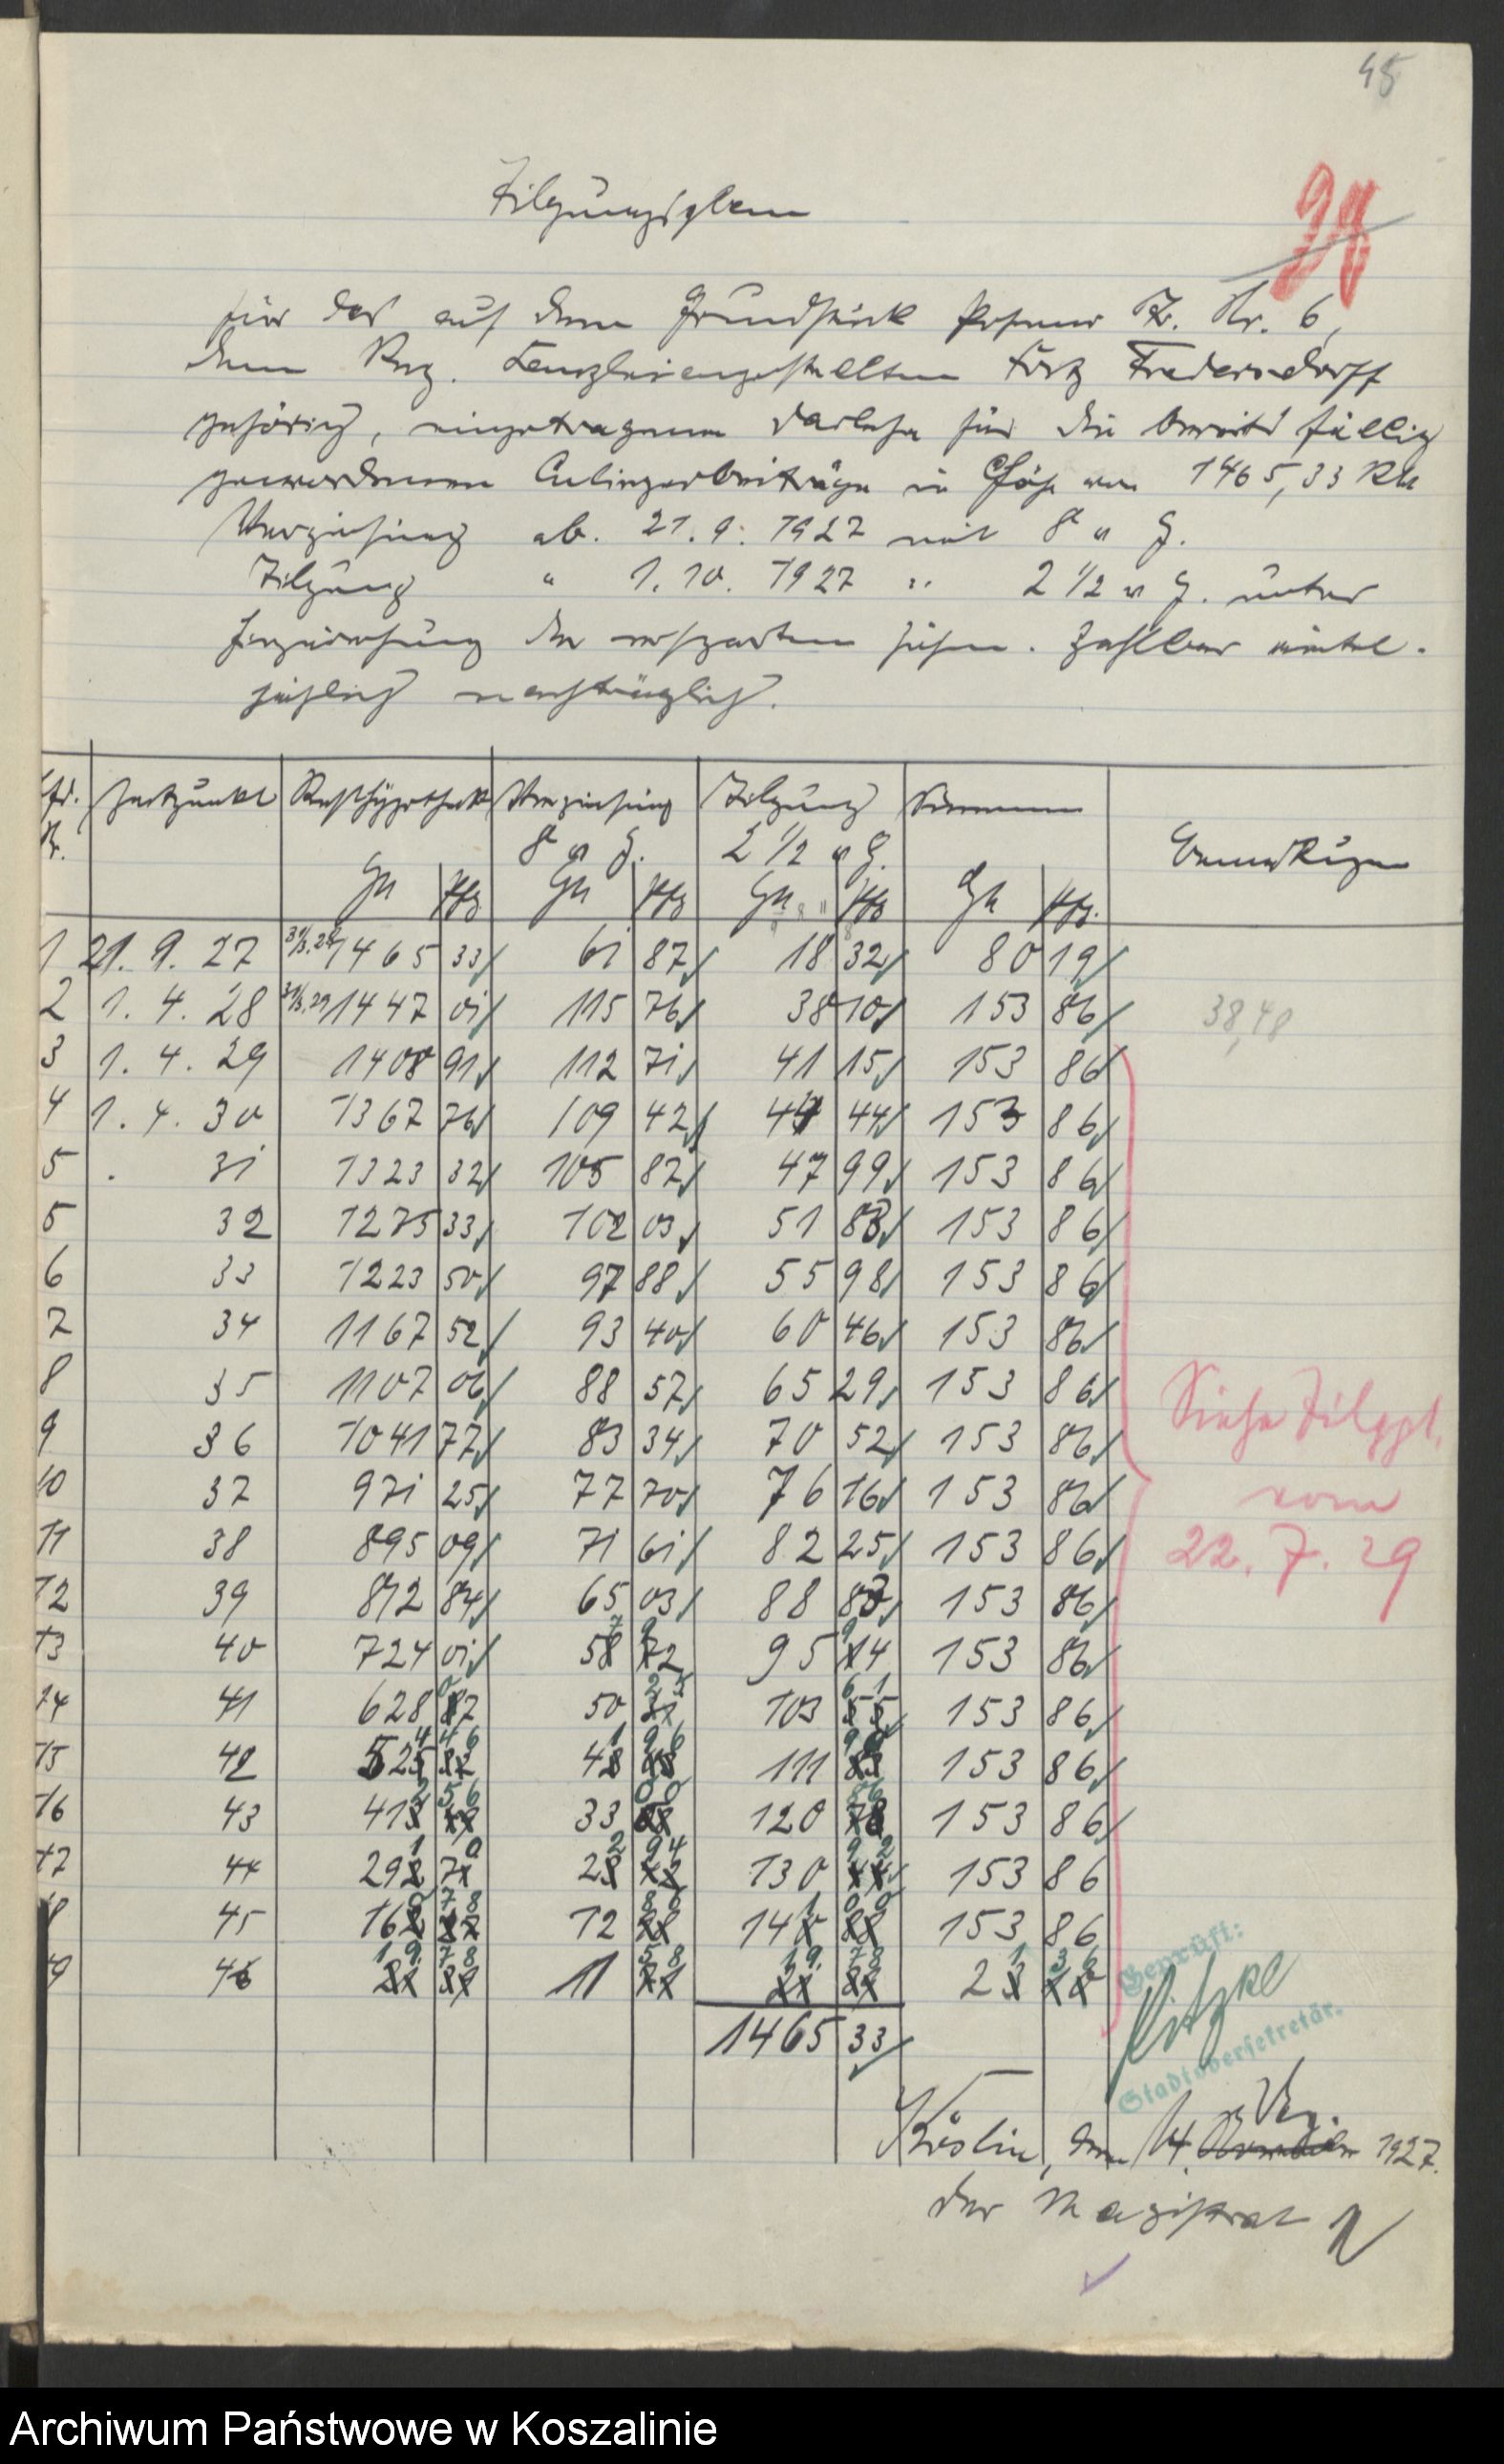 45
28
Tilgungsplan
für das auf dem Grundstück Posener Str. Nr. 6,
dem Reg. Kanzleiangestellten Fritz Fredersdorff
gehörig, eingetragene Darlehn für die bereits fällig
gewordenen Anliegerbeiträge in Höhe von 1465,33 RM
Verzinsung ab. 21. 9. 1927 mit 8 v H.
Tilgung " 1. 10. 1927 " 2 1/2 v H. unter
Hinzurechnung der ersparten Zinsen. Zahlbar viertel-
jährlich nachträglich.
Lfd. Nr. Zeitpunkt Resthypothek Verzinsung Tilgung Summe
8 v H. 2 1/2 v H. Bemerkungen
GM Pfg GM Pfg GM Pfg GM Pfg.
1 21. 9. 27 1465 33 61 87 18 32 80 19
2 1. 4. 28 1447 01 115 76 38 10 153 86 38,48
3 1. 4. 29 1408 91 112 71 41 15 153 86
4 1. 4. 30 1367 76 109 42 44 44 153 86
5 . 31 1323 32 105 87 47 99 153 86
5 32 1275 33 102 03 51 83 153 86
6 33 1223 50 97 88 55 98 153 86
7 34 1167 52 93 40 60 46 153 86
8 35 1107 06 88 57 65 29 153 86
9 36 1041 77 83 34 70 52 153 86
10 37 971 25 77 70 76 16 153 86
11 38 895 09 71 61 82 25 153 86
12 39 812 84 65 03 88 83 153 86
13 40 724 01 57 92 95 94 153 86
14 41 628 07 50 25 103 61 153 86
15 42 524 46 41 96 111 90 153 86
16 43 412 56 33 00 120 86 153 86
17 44 291 70 22 94 130 92 153 86
18 45 160 78 12 86 141 00 153 86
19 46 19 78 1 58 19 78 21 36
1465 33
Siehe Tilgpl.
vom
22. 7. 29
Geprüft:
Stadtobersekretär.
Köslin, den 14. Dez. 1927.
Der Magistrat
Archiwum Państwowe w Koszalinie